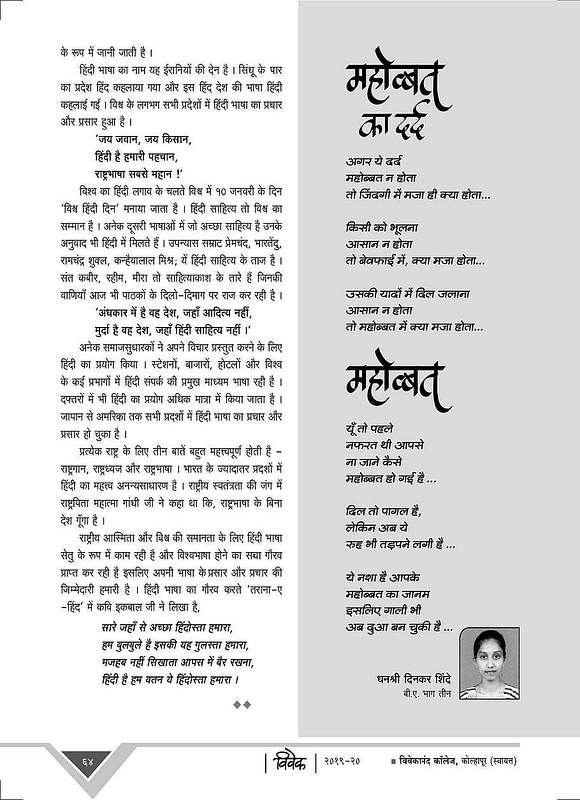 के रूप में जानी जाती है ।
हिंदी भाषा का नाम यह ईरानियों की देन है । सिंधू के पार
का प्रदेश हिंद कहलाया गया और इस हिंद देश की भाषा हिंदी
कहलाई गई । विश्व के लगभग सभी प्रदेशों में हिंदी भाषा का प्रचार
और प्रसार हुआ है ।
‘जय जवान, जय किसान,
हिंदी है हमारी पहचान,
राष्ट्रभाषा सबसे महान !’
विश्व का हिंदी लगाव के चलते विश्व में १० जनवरी के दिन
‘विश्व हिंदी दिन’ मनाया जाता है । हिंदी साहित्य तो विश्व का
सम्मान है । अनेक दूसरी भाषाओं में जो अच्छा साहित्य है उनके
अनुवाद भी हिंदी में मिलते हैं । उपन्यास सम्राट प्रेमचंद, भारतेंदु,
रामचंद्र शुक्ल, कन्हैयालाल मिश्र; यें हिंदी साहित्य के ताज है ।
संत कबीर, रहीम, मीरा तो साहित्याकाश के तारे हैं जिनकी
वाणियाँ आज भी पाठकों के दिलो-दिमाग पर राज कर रही है ।
‘अंधकार में है वह देश, जहाँ आदित्य नहीं,
मुर्दा है वह देश, जहाँ हिंदी साहित्य नहीं ।’
अनेक समाजसुधारकों ने अपने विचार प्रस्तुत करने के लिए
हिंदी का प्रयोग किया । स्टेशनों, बाजारों, होटलों और विश्व
के कई प्रभागों में हिंदी संपर्क की प्रमुख माध्यम भाषा रही है ।
दफ्तरों में भी हिंदी का प्रयोग अधिक मात्रा में किया जाता है ।
जापान से अमरिका तक सभी प्रदशों में हिंदी भाषा का प्रचार और
प्रसार हो चुका है ।
प्रत्येक राष्ट्र के लिए तीन बातें बहुत महत्त्वपूर्ण होती है -
राष्ट्रगान, राष्ट्रध्वज और राष्ट्रभाषा । भारत के ज्यादातर प्रदशों में
हिंदी का महत्त्व अनन्यसाधारण है । राष्ट्रीय स्वतंत्रता की जंग में
राष्ट्रपिता महात्मा गांधी जी ने कहा था कि, राष्ट्रभाषा के बिना
देश गूँगा है ।
राष्ट्रीय आस्मिता और विश्व की समानता के लिए हिंदी भाषा
सेतु के रूप में काम रही है और विश्वभाषा होने का सच्चा गौरव
प्राप्त कर रही है इसलिए अपनी भाषा के प्रसार और प्रचार की
जिम्मेदारी हमारी है । हिंदी भाषा का गौरव करते ‘तराना-ए
-हिंद’ में कवि इकबाल जी ने लिखा है,
सारे जहाँ से अच्छा हिंदोस्ता हमारा,
हम बुलबुले है इसकी यह गुलस्ता हमारा,
मजहब नहीं सिखाता आपस में बैर रखना,
हिंदी है हम वतन ये हिंदोस्ता हमारा ।
महोब्बत
का दर्द
अगर ये दर्द
महोब्बत न होता
तो जिंदगी में मजा ही क्या होता...
किसी को भूलना
आसान न होता
तो बेवफाई में, क्या मजा होता...
उसकी यादों में दिल जलाना
आसान न होता
तो महोब्बत में क्या मजा होता...
महोब्बत
यूँ तो पहले
नफरत थी आपसे
ना जाने कैसे
महोब्बत हो गई है ...
दिल तो पागल है,
लेकिन अब ये
रुह भी तड़पने लगी है ...
ये नशा है आपके
महोब्बत का जानम
इसलिए गाली भी
अब दुआ बन चुकी है ...
धनश्री दिनकर शिंदे
बी.ए. भाग तीन
६४
विवेक
२०१९-२०
विवेकानंद कॉलेज, कोल्हापूर (स्वायत्त)